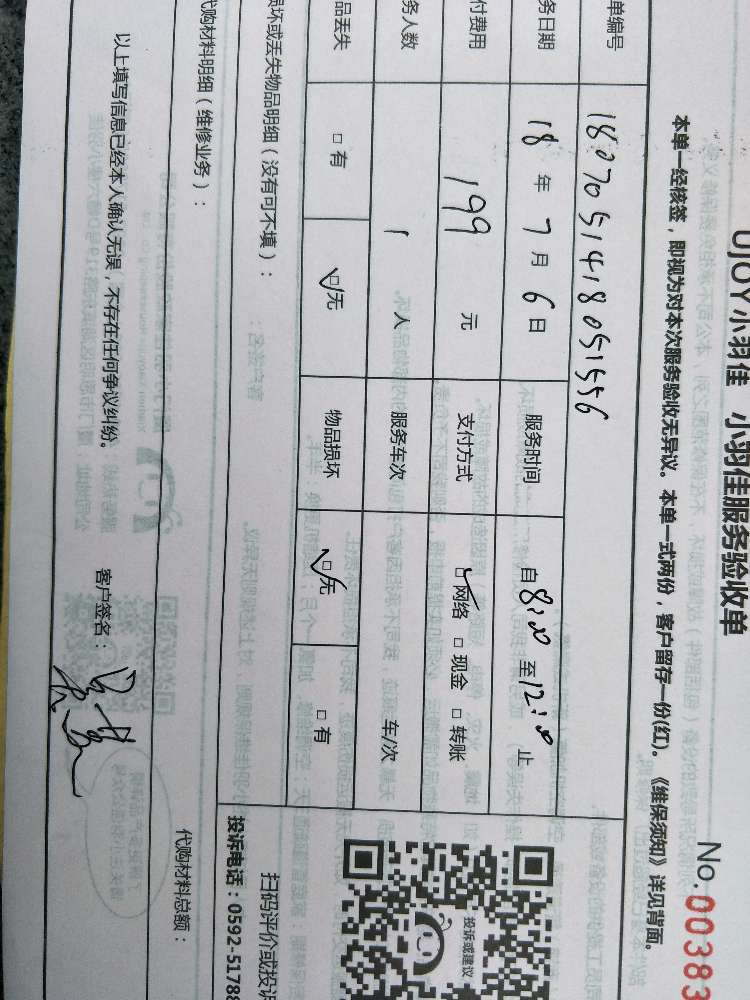 UJOY小羽佳 小羽佳服务验收单
No.00383
本单一经核签，即视为对本次服务验收无异议。本单一式两份，客户留存一份(红)。《维保须知》详见背面。
单编号 1807051418051556
务日期 18年7月6日 服务时间 自8:00至12:00止
付费用 199元 支付方式 ☑网络 □现金 □转账
务人数 1人 服务车次 车/次
品丢失 □有 ☑无 物品损坏 ☑无 □有
投诉或建议
损坏或丢失物品明细（没有可不填）：
扫码评价或投诉
投诉电话：0592-51788
代购材料明细（维修业务）：
代购材料总额：
以上填写信息已经本人确认无误，不存在任何争议纠纷。 客户签名：